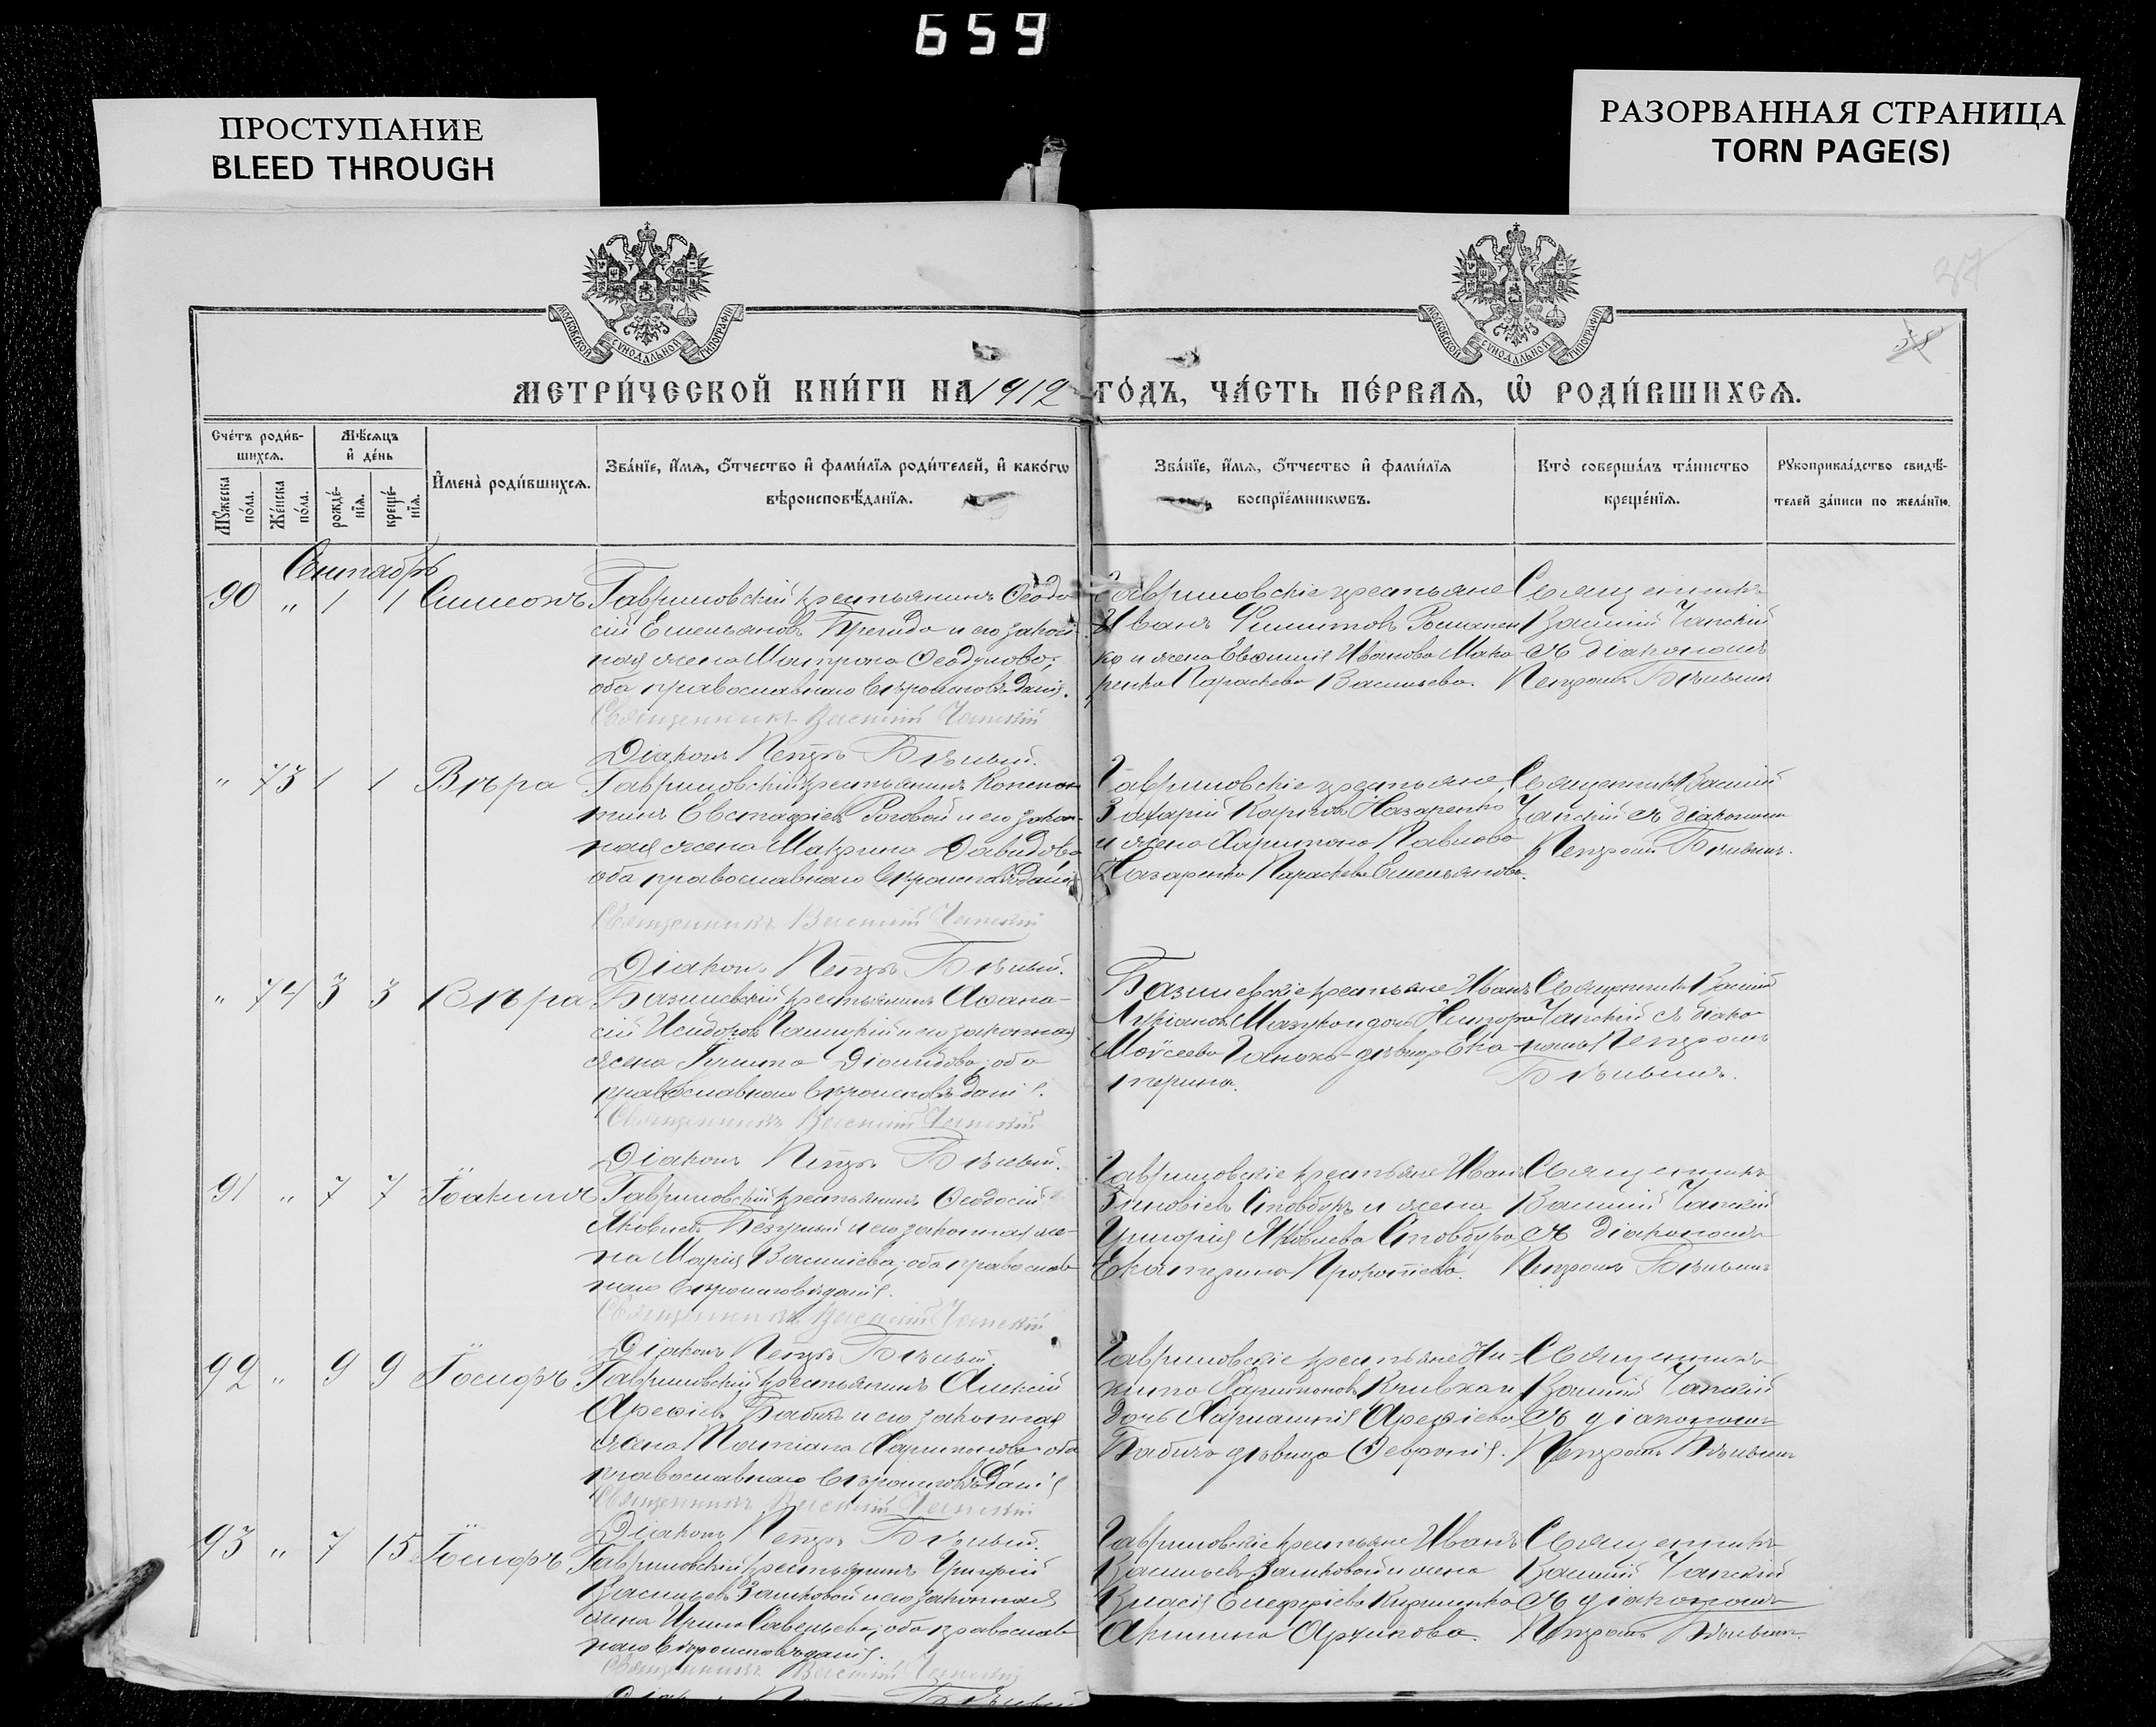 659
ПРОСТУПАНИЕ
BLEED THROUGH
РАЗОРВАННАЯ СТРАНИЦА
TORN PAGE(S)
МОСКОВСКОЙ СѴНОДАЛЬНОЙ ТИПОГРАФІИ
МОСКОВСКОЙ СѴНОДАЛЬНОЙ ТИПОГРАФІИ
МЕТРИ́ЧЕСКОЙ КНИ́ГИ НА 1912 ГО́ДЪ, ЧА́СТЬ ПЕ́РВАѦ, Ѡ҆ РОДИ́ВШИХСѦ.
Сче́тъ роди́в-
шихсѧ.
Мѣ́сѧцъ
и҆ де́нь
Мꙋ́жеска по́ла.
Же́нска по́ла.
рожде́-
нїѧ.
креще́-
нїѧ.
И҆мена̀ роди́вшихсѧ.
Зва́нїе, и҆́мѧ, ѻ҆́тчество и҆ фами́лїѧ роди́телей, и҆ како́гѡ
вѣроисповѣ́данїѧ.
Зва́нїе, и҆́мѧ, ѻ҆́тчество и҆ фами́лїѧ
воспрїе́мникѡвъ.
Кто̀ соверша́лъ та́инство
креще́нїѧ.
Рꙋкоприкла́дство свидѣ́-
телей за́писи по жела́нїю.
Сентябрь
90 " 1 1 Симеонъ
Гавриловскій крестьянинъ Ѳеодо
сій Емельяновъ и его закон
ная жена Матрона
оба православнаго вѣроисповѣданія.
Священникъ Василий Чапскій
Діаконъ Петръ Бѣлый.
Гавриловскіе крестьяне
Иванъ Филиповъ Романен
ко и жена Евфимія Иванова Мака
ренко Параскева Васильева.
Священникъ
Василій Чапскій
съ діакономъ
Петромъ Бѣлымъ
" 73 1 1 Вѣра
Гавриловскій крестьянинъ Констан
тинъ Евстафіевъ Роговой и его закон-
ная жена Макрина Давидова
оба православнаго вѣроисповѣданія
Священникъ Василий Чапскій
Діаконъ Петръ Бѣлый.
Гавриловскіе крестьяне
Захарій Карповъ Назаренко
и жена Харитона Павлова
Назаренко Параскева Емельянова.
Священникъ Василій
Чапскій съ діакономъ
Петромъ Бѣлымъ.
" 74 3 3 Вѣра
крестьянинъ Аѳана-
сій Исидоровъ и его законная
жена Діомидова; оба
православнаго вѣроисповѣданія.
Священникъ Василий Чапскій
Діаконъ Петръ Бѣлый.
крестьяне Иванъ
Моисеева дѣвица Ека-
терина.
Священникъ Василій
Чапскій съ діако-
номъ Петромъ
Бѣлымъ.
91 " 7 7 Іоакимъ
Гавриловскій крестьянинъ Ѳеодосій
Яковлевъ и его законная же-
на Марія Васильева; оба православ
наго вѣроисповѣданія.
Священникъ Василий Чапскій
Діаконъ Петръ Бѣлый.
Гавриловскіе крестьяне Иванъ
Зиновіевъ Столбуръ и жена
Григорія Яковлева Столбура
Екатерина Прокопіева.
Священникъ
Василій Чапскій
съ діакономъ
Петромъ Бѣлымъ
92 " 9 9 Іосифъ
Гавриловскій крестьянинъ Алексій
Арефіевъ Бабичъ и его законная
жена Татіана Харитонова оба
православнаго вѣроисповѣданія
Священникъ Василий Чапскій
Діаконъ Петръ Бѣлый.
Гавриловскіе крестьяне Ни-
кита Харитоновъ и
дочь Арефіева
Бабича дѣвица Февронія.
Священникъ
Василій Чапскій
съ діакономъ
Петромъ Бѣлымъ
93 " 7 15 Іосифъ
Гавриловскій крестьянинъ Григорій
Васильевъ Замковой и его законная
жена Ирина Савельева; оба православ
наго вѣроисповѣданія.
Священникъ Василий Чапскій
Гавриловскіе крестьяне Иванъ
Васильевъ Замковой и жена
Власія Елеферіева Кириленко
Акилина
Священникъ
Василій Чапскій
съ діакономъ
Петромъ Бѣлымъ.